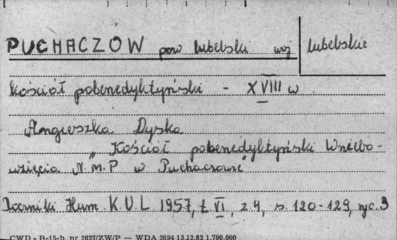 PUCHACZÓW pow lubelski woj lubelskie
kościół pobenedyktyński - XVIII w
Agnieszka Dyska
„Kościół pobenedyktyński Wniebo-
wzięcia N.M.P w Puchaczowie"
Roczniki Hum. K.U.L 1957, t VI, z 4, s. 120-129, ryc. 3
CWD - B-15-h. nr 2827/ZW/P — WDA 2694 13.12.62 1.700.000